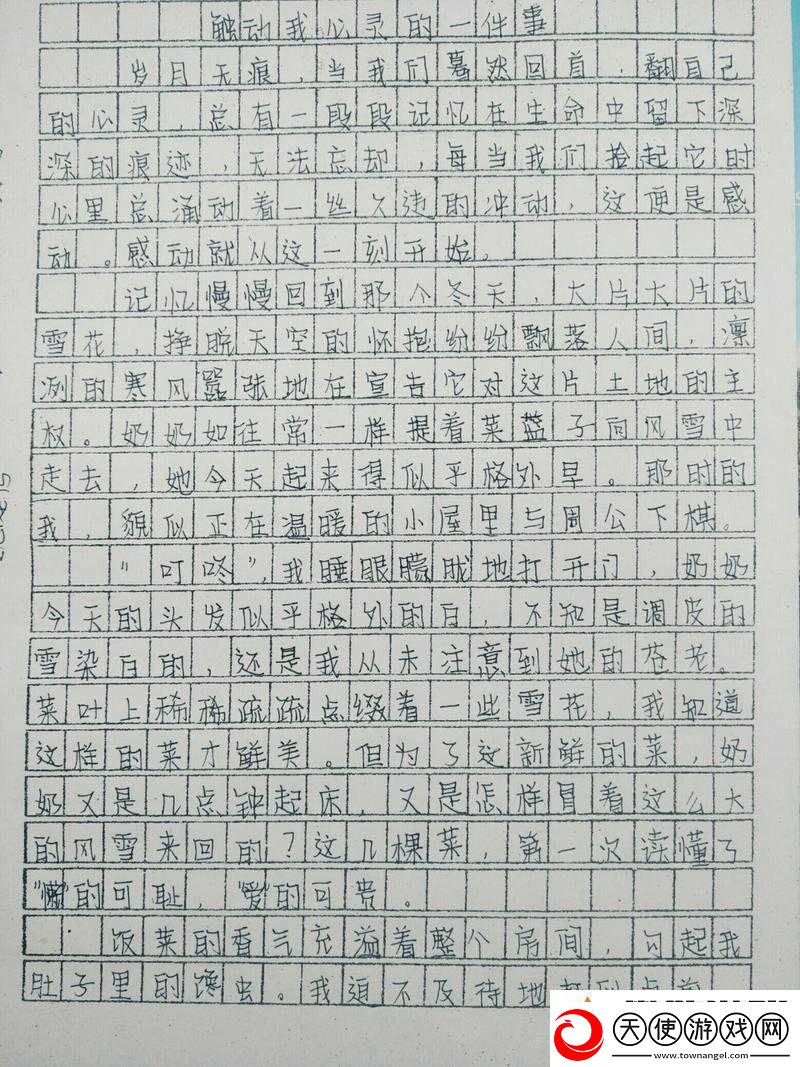 触动我心灵的一件事
岁月无痕，当我们蓦然回首，翻自己
的心灵，总有一段段记忆在生命中留下深
深的痕迹，无法忘却，每当我们捡起它时
心里总涌动着一丝久违的冲动，这便是感
动。感动就从这一刻开始。
记忆慢慢回到那个冬天，大片大片的
雪花，挣脱天空的怀抱纷纷飘落人间，凛
冽的寒风嚣张地在宣告它对这片土地的主
权。奶奶如往常一样提着菜篮子向风雪中
走去，她今天起来得似乎格外早。那时的
我，貌似正在温暖的小屋里与周公下棋。
“叮咚”，我睡眼朦胧地打开门，奶奶
今天的头发似乎格外的白，不知是调皮的
雪染白的，还是我从未注意到她的苍老。
菜叶上稀稀疏疏点缀着一些雪花，我知道
这样的菜才鲜美。但为了这新鲜的菜，奶
奶又是几点钟起床，又是怎样冒着这么大
的风雪来回的？这几棵菜，第一次读懂了
“懒”的可耻，“爱”的可贵。
饭菜的香气充溢着整个房间，勾起我
肚子里的馋虫。我迫不及待地
天使游戏网
www.townangel.com